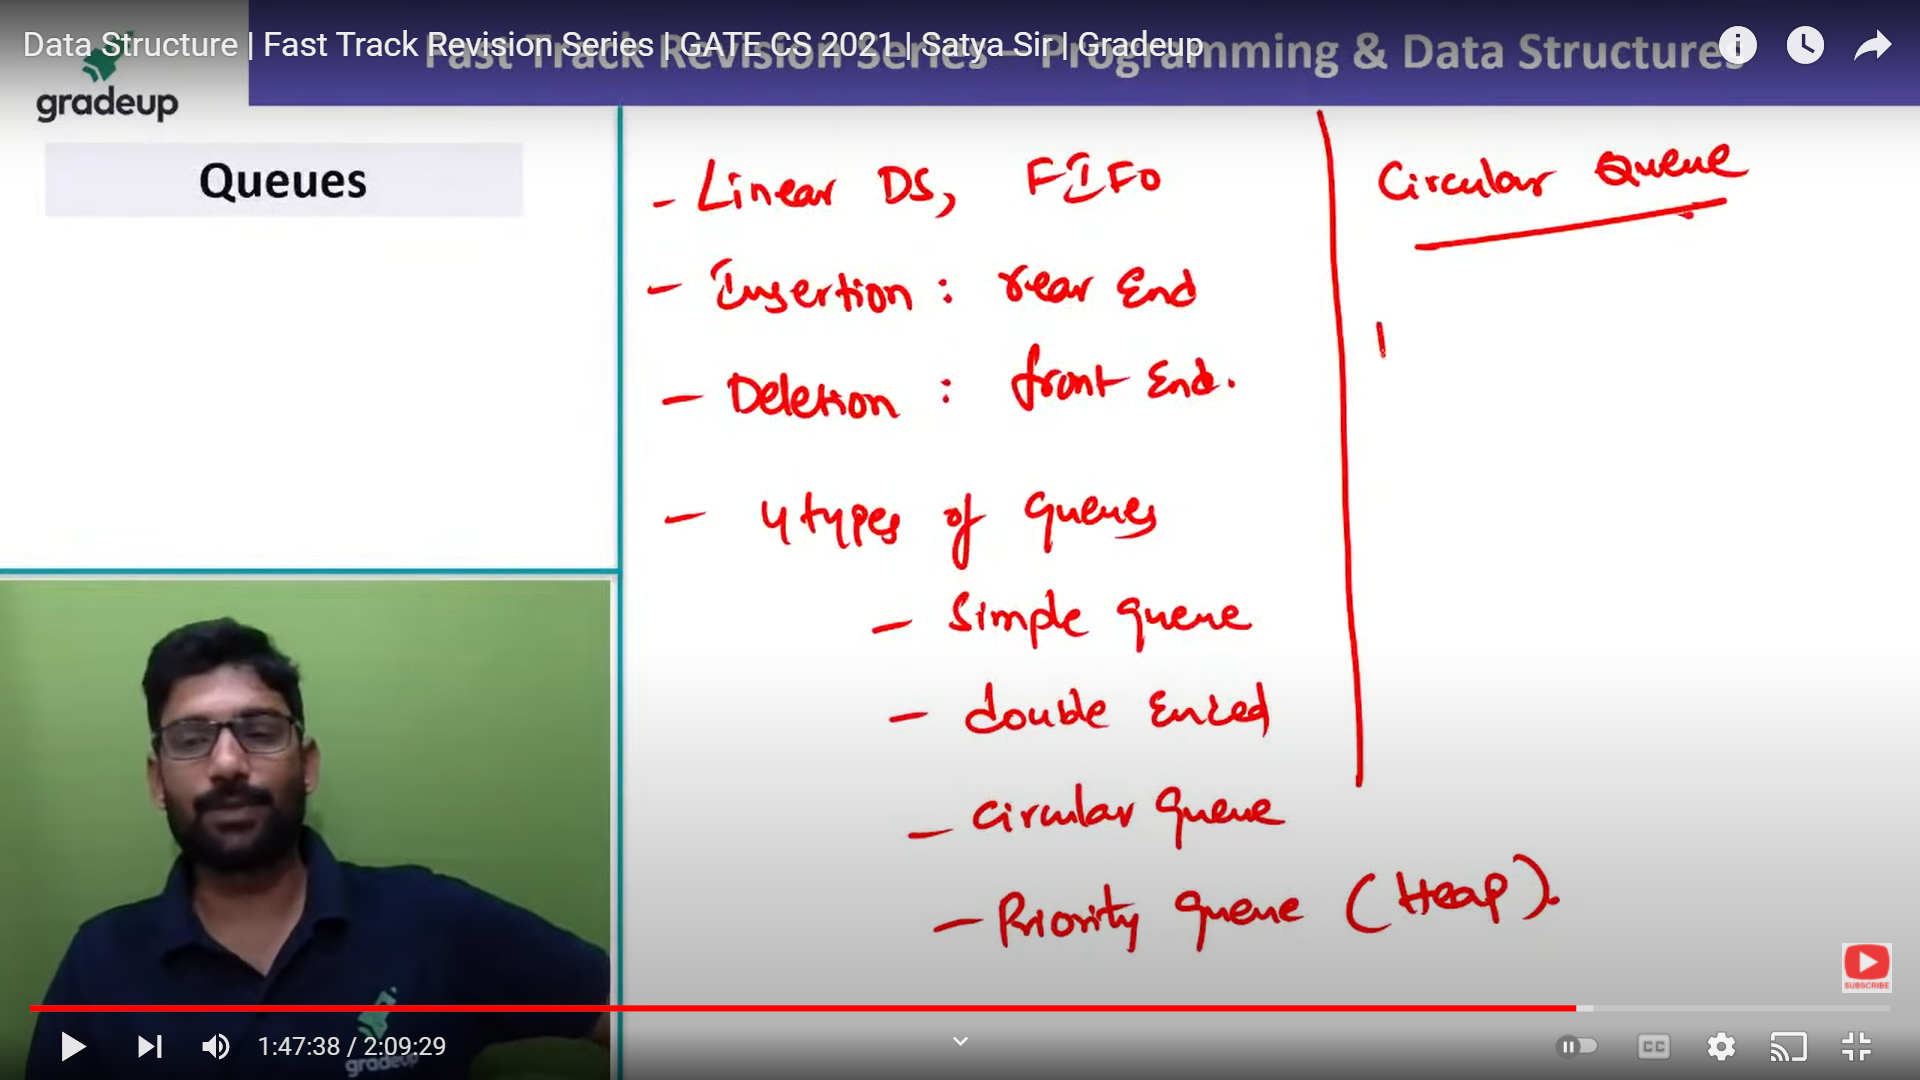 Data Structure | Fast Track Revision Series | GATE CS 2021 | Satya Sir | Gradeup
Fast Track Revision Series - Programming & Data Structures
gradeup
Queues
- Linear DS, FIFO
- Insertion : rear End
- Deletion : front End.
- 4 types of queues
- Simple queue
- double Ended
- circular queue
- Priority queue (Heap).
Circular Queue
gradeup
SUBSCRIBE
1:47:38 / 2:09:29
CC